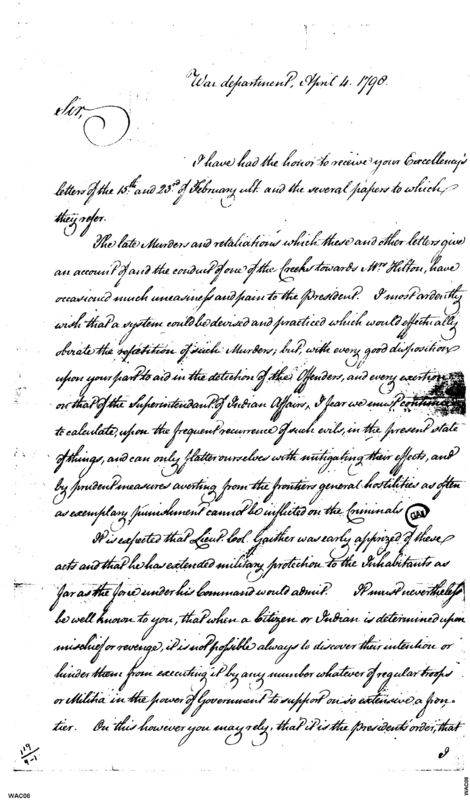 War department, April 4. 1798.
Sir,
I have had the honor to receive your Excellency's
letters of the 15th and 23d of February ult. and the several papers to which
they refer.
The late Murders and retaliations which these and other letters give
an account of and the conduct of one of the Creeks towards Mrs. Hilton, have
occasion'd much uneasiness and pain to the President. I most ardently
wish that a system could be devised and practiced which would effectually
obviate the repetition of such Murders; but, with every good disposition
upon your part to aid in the detection of the Offenders, and every exertion
on that of the Superintendant of Indian Affairs, I fear we must
to calculate, upon the frequent recurrence of such evils, in the present state
of things, and can only flatter ourselves with mitigating their effects, and
by prudent measures averting from the frontiers general hostilities as often
as exemplary punishment cannot be inflicted on the Criminals
It is expected that Lieut. Col. Gaither was early apprized of these
acts and that he has extended military protection to the Inhabitants as
far as the force under his command would admit. It must nevertheless
be well known to you, that when a Citizen or Indian is determined upon
mischief or revenge, it is not possible always to discover their intention or
hinder them from executing it by any number whatever of regular troops
or Militia in the power of Government to support on so extensive a fron-
tier. On this however you may rely, that it is the Presidents order, that
I
WAC08
WAC08